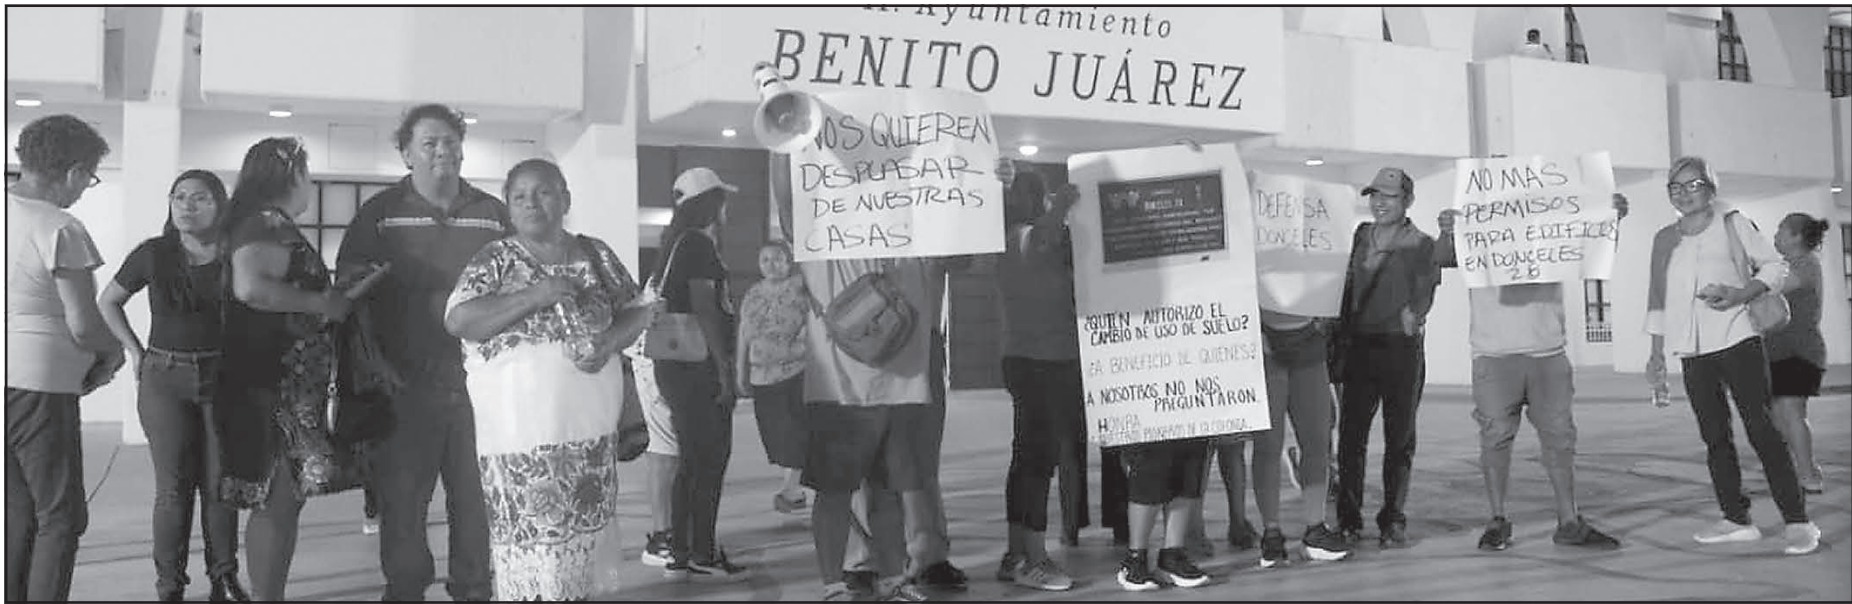 H. Ayuntamiento
BENITO JUÁREZ
NOS QUIEREN
DESPLASAR
DE NUESTRAS
CASAS
¿QUIÉN AUTORIZO EL
CAMBIO DE USO DE SUELO?
¿A BENEFICIO DE QUIENES?
A NOSOTROS NO NOS
PREGUNTARON
HONRA
DE LA COLONIA.
DEFENSA
DONCELES
NO MAS
PERMISOS
PARA EDIFICIOS
EN DONCELES
28